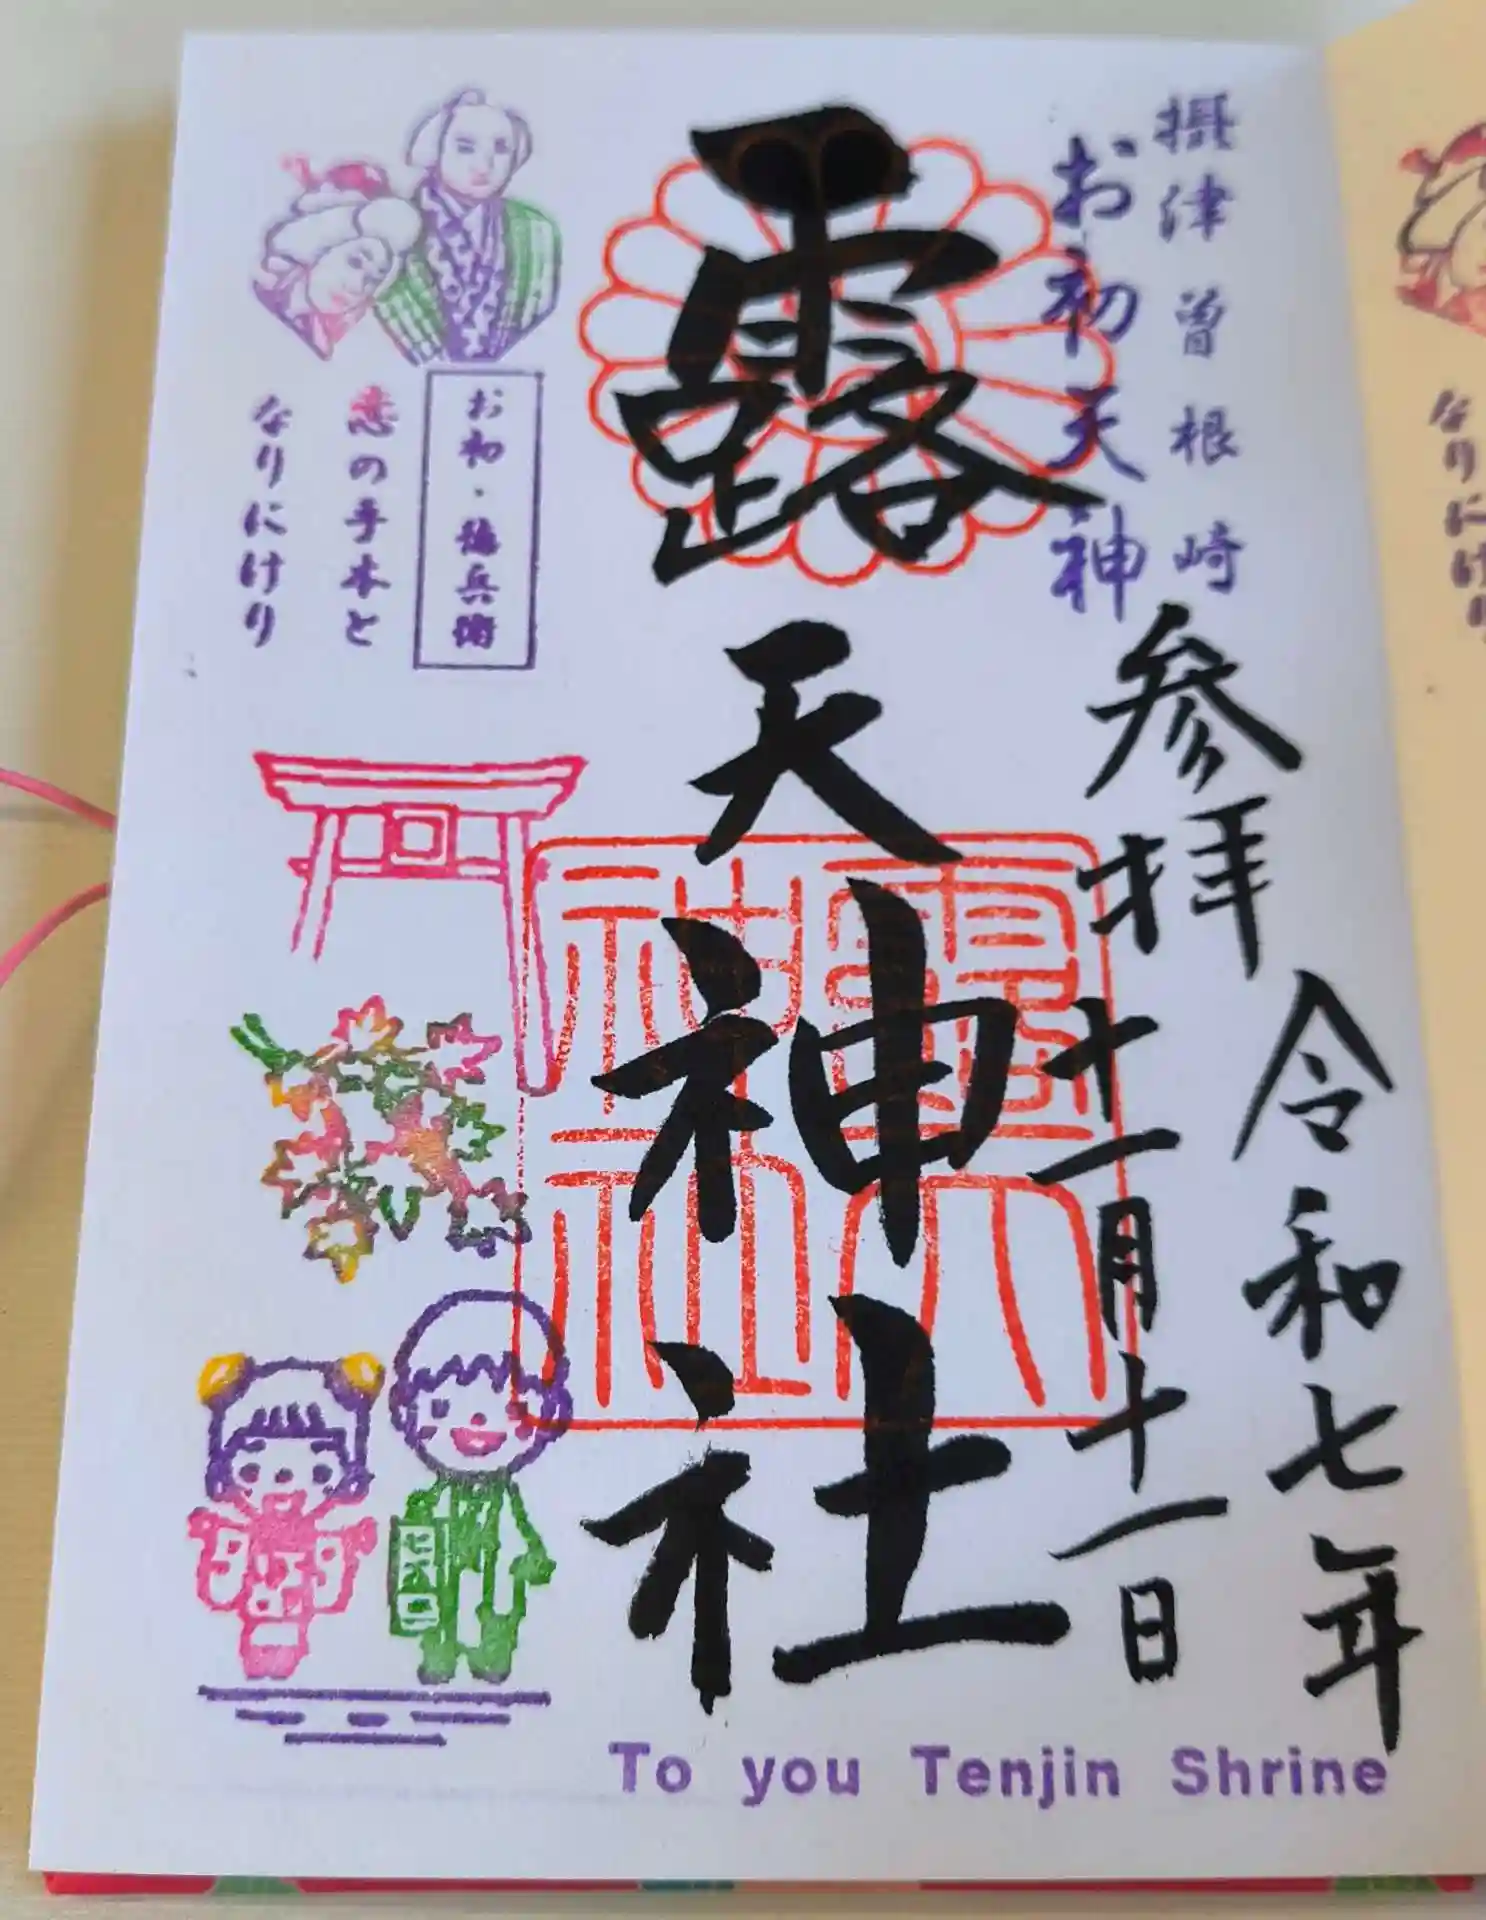 摂津曽根崎
お初天神
参拝
令和七年
十一月十一日
露天神社
露天神社
お初・徳兵衛
恋の手本と
なりにけり
To you Tenjin Shrine
なりにけり